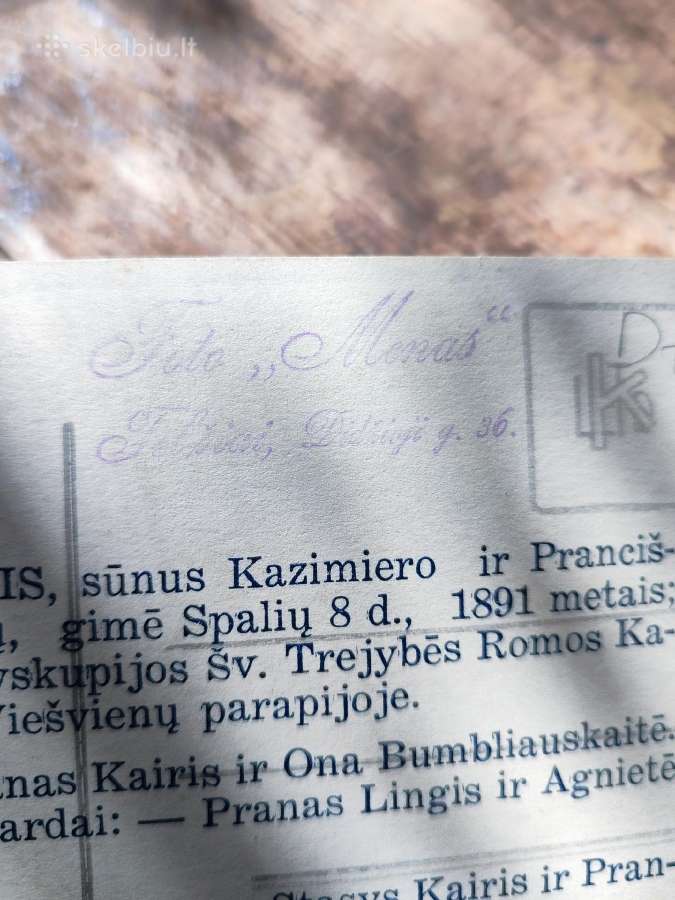 skelbiu.lt
Foto „Menas“
Telšiai, Didžioji g. 36.
D-
IS, sūnus Kazimiero ir Pranciš-
gimē Spalių 8 d., 1891 metais;
yskupijos Šv. Trejybēs Romos Ka-
Viešvienų parapijoje.
nas Kairis ir Ona Bumbliauskaitē.
ardai: — Pranas Lingis ir Agnietē
Stasys Kairis ir Pran-